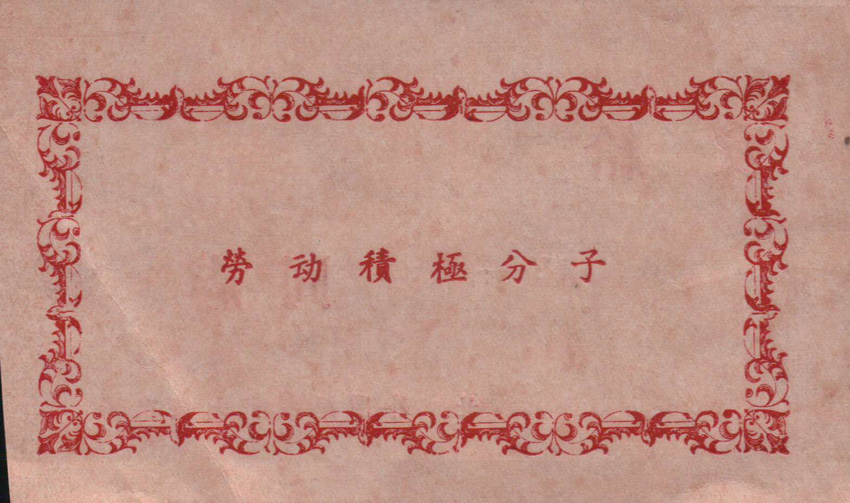 勞动積極分子